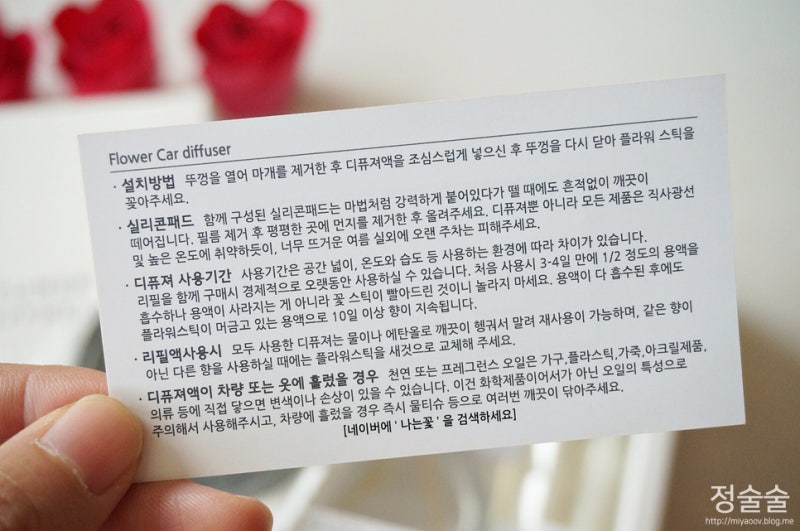 Flower Car diffuser
· 설치방법 뚜껑을 열어 마개를 제거한 후 디퓨져액을 조심스럽게 넣으신 후 뚜껑을 다시 닫아 플라워 스틱을
꽂아주세요.
· 실리콘패드 함께 구성된 실리콘패드는 마법처럼 강력하게 붙어있다가 뗄 때에도 흔적없이 깨끗이
떼어집니다. 필름 제거 후 평평한 곳에 먼지를 제거한 후 올려주세요. 디퓨져뿐 아니라 모든 제품은 직사광선
및 높은 온도에 취약하듯이, 너무 뜨거운 여름 실외에 오랜 주차는 피해주세요.
· 디퓨져 사용기간 사용기간은 공간 넓이, 온도와 습도 등 사용하는 환경에 따라 차이가 있습니다.
리필을 함께 구매시 경제적으로 오랫동안 사용하실 수 있습니다. 처음 사용시 3-4일 만에 1/2 정도의 용액을
흡수하나 용액이 사라지는 게 아니라 꽃 스틱이 빨아드린 것이니 놀라지 마세요. 용액이 다 흡수된 후에도
플라워스틱이 머금고 있는 용액으로 10일 이상 향이 지속됩니다.
· 리필액사용시 모두 사용한 디퓨져는 물이나 에탄올로 깨끗이 헹궈서 말려 재사용이 가능하며, 같은 향이
아닌 다른 향을 사용하실 때에는 플라워스틱을 새것으로 교체해 주세요.
· 디퓨져액이 차량 또는 옷에 흘렀을 경우 천연 또는 프레그런스 오일은 가구,플라스틱,가죽,아크릴제품,
의류 등에 직접 닿으면 변색이나 손상이 있을 수 있습니다. 이건 화학제품이어서가 아닌 오일의 특성으로
주의해서 사용해주시고, 차량에 흘렀을 경우 즉시 물티슈 등으로 여러번 깨끗이 닦아주세요.
[네이버에 ' 나는꽃 ' 을 검색하세요]
정술술
http://miyaoov.blog.me